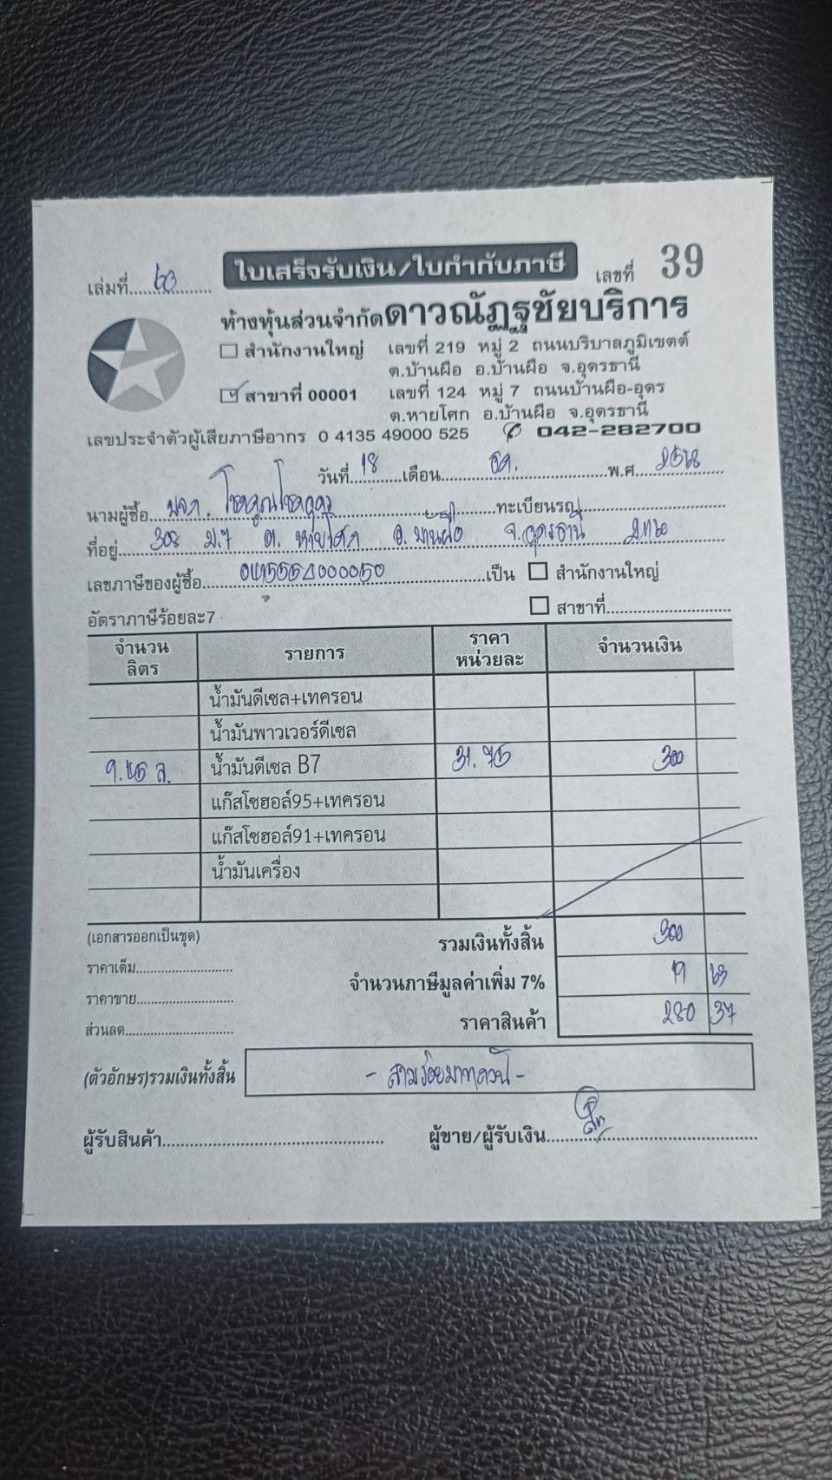 เล่มที่ 63 ใบเสร็จรับเงิน/ใบกำกับภาษี เลขที่ 39
ห้างหุ้นส่วนจำกัดดาวณัฏฐชัยบริการ
สำนักงานใหญ่ เลขที่ 219 หมู่ 2 ถนนบริบาลภูมิเขตต์
ต.บ้านผือ อ.บ้านผือ จ.อุดรธานี
สาขาที่ 00001 เลขที่ 124 หมู่ 7 ถนนบ้านผือ-อุดร
ต.หายโศก อ.บ้านผือ จ.อุดรธานี
เลขประจำตัวผู้เสียภาษีอากร 0 4135 49000 525 042-282700
วันที่ 18 เดือน ธค. พ.ศ. 2568
นามผู้ซื้อ หจก. ทะเบียนรถ
ที่อยู่ 308 ม.7 ต. หายโศก อ.บ้านผือ จ.อุดรธานี
เลขภาษีของผู้ซื้อ เป็น สำนักงานใหญ่
อัตราภาษีร้อยละ7 สาขาที่
จำนวนลิตร รายการ ราคาหน่วยละ จำนวนเงิน
น้ำมันดีเซล+เทครอน
น้ำมันพาวเวอร์ดีเซล
9.45 ล. น้ำมันดีเซล B7 31.75 300
แก๊สโซฮอล์95+เทครอน
แก๊สโซฮอล์91+เทครอน
น้ำมันเครื่อง
(เอกสารออกเป็นชุด) รวมเงินทั้งสิ้น 300
ราคาเต็ม จำนวนภาษีมูลค่าเพิ่ม 7% 19 63
ราคาขาย ราคาสินค้า 280 37
ส่วนลด
(ตัวอักษร)รวมเงินทั้งสิ้น - สามร้อยบาทถ้วน -
ผู้รับสินค้า ผู้ขาย/ผู้รับเงิน